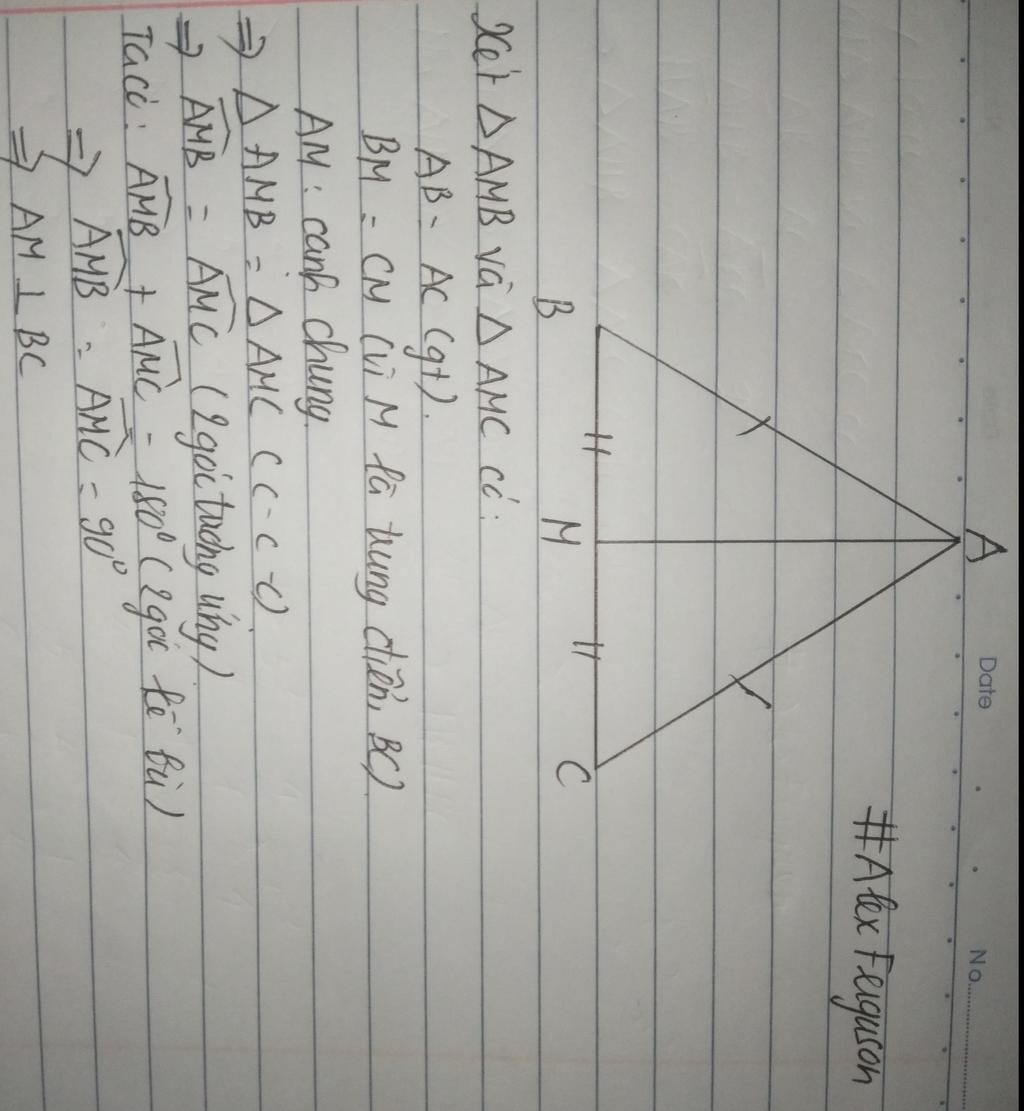 Date
No.
#Alex Ferguson
A
B M C
Xét △ AMB và △ AMC có:
AB = AC (gt).
BM = CM (vì M là trung điểm BC)
AM: cạnh chung
⇒ △ AMB = △ AMC (c-c-c)
⇒ \widehat{AMB} = \widehat{AMC} (2 góc tương ứng)
Ta có: \widehat{AMB} + \widehat{AMC} = 180° (2 góc kề bù)
⇒ \widehat{AMB} = \widehat{AMC} = 90°
⇒ AM ⊥ BC